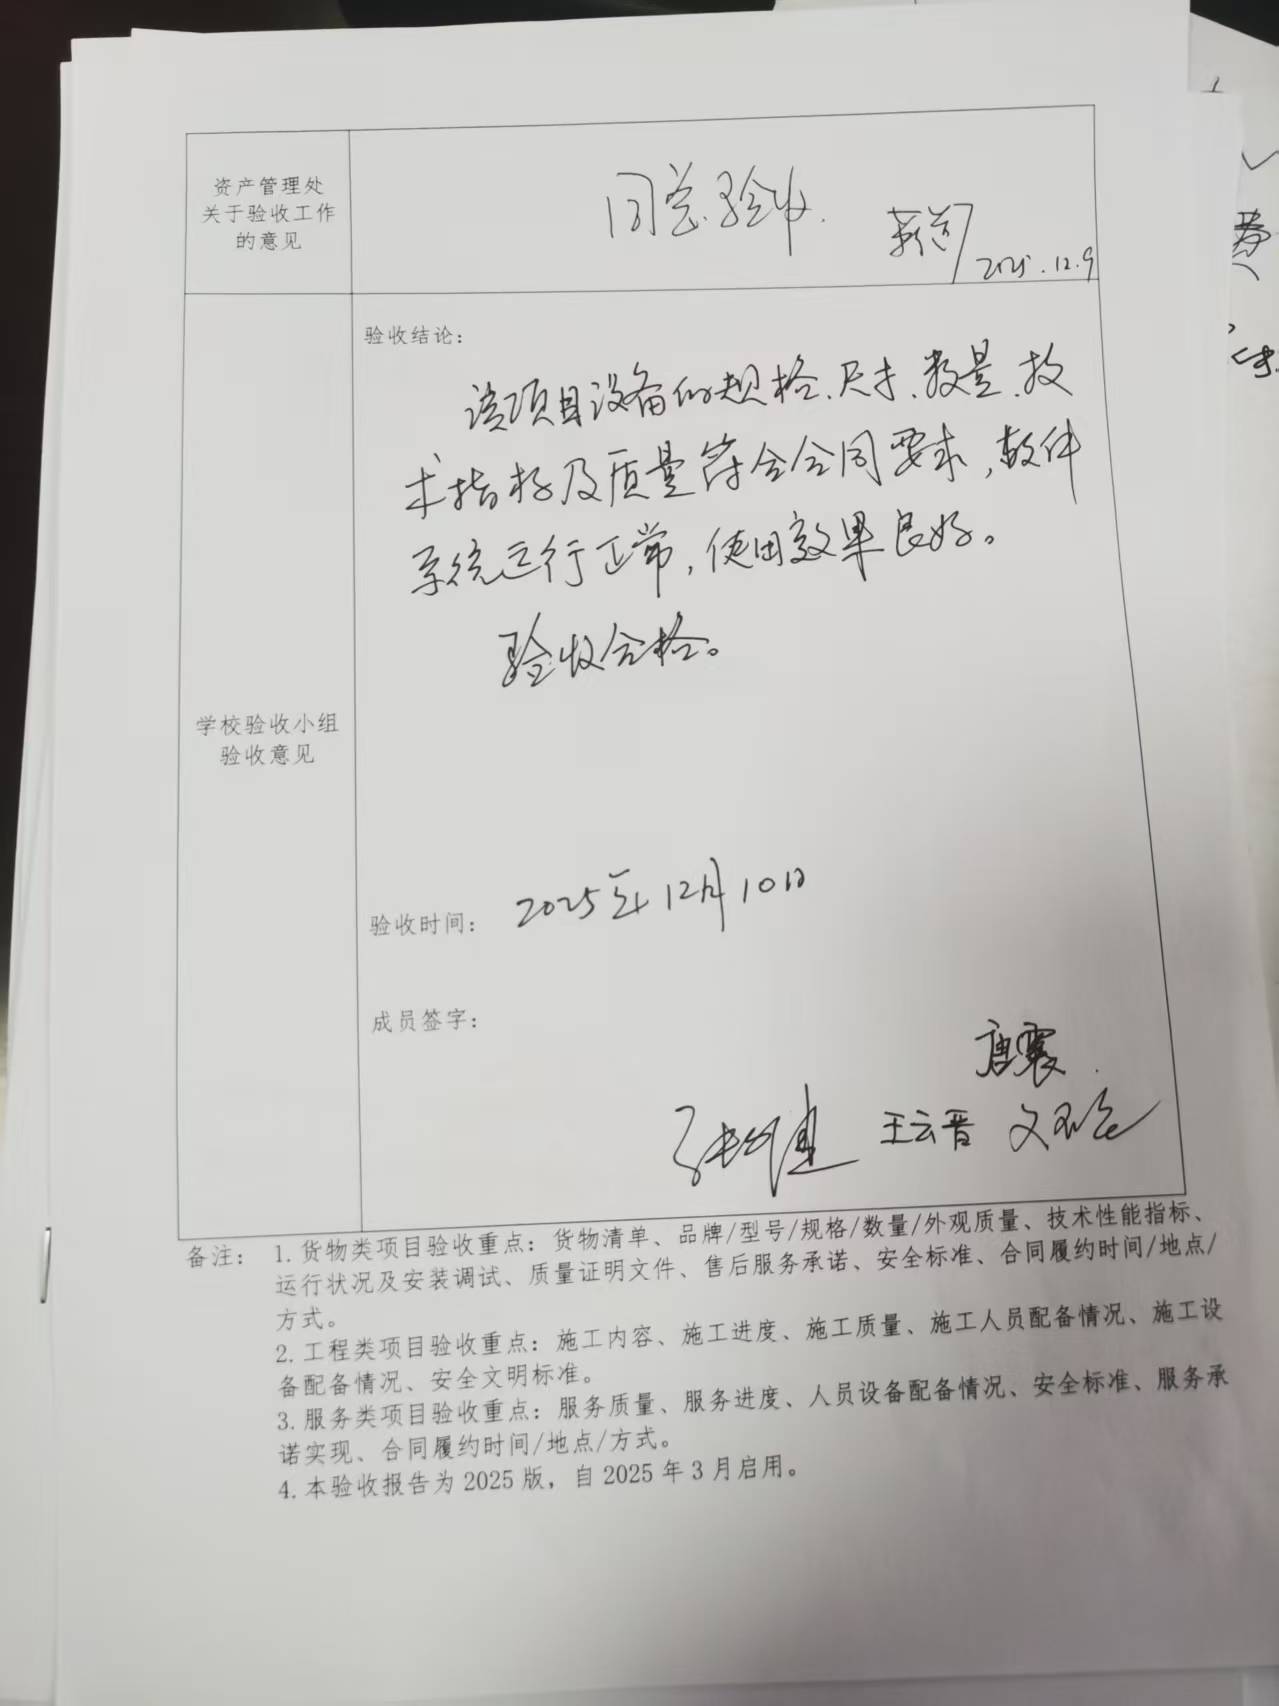 资产管理处
关于验收工作
的意见
同意验收.
2025.12.9
学校验收小组
验收意见
验收结论：
该项目设备的规格、尺寸、数量、技
术指标及质量符合合同要求，软件
系统运行正常，使用效果良好。
验收合格。
验收时间： 2025年12月10日
成员签字：
唐震
王云晋
备注： 1.货物类项目验收重点：货物清单、品牌/型号/规格/数量/外观质量、技术性能指标、
运行状况及安装调试、质量证明文件、售后服务承诺、安全标准、合同履约时间/地点/
方式。
2.工程类项目验收重点：施工内容、施工进度、施工质量、施工人员配备情况、施工设
备配备情况、安全文明标准。
3.服务类项目验收重点：服务质量、服务进度、人员设备配备情况、安全标准、服务承
诺实现、合同履约时间/地点/方式。
4.本验收报告为2025版，自2025年3月启用。